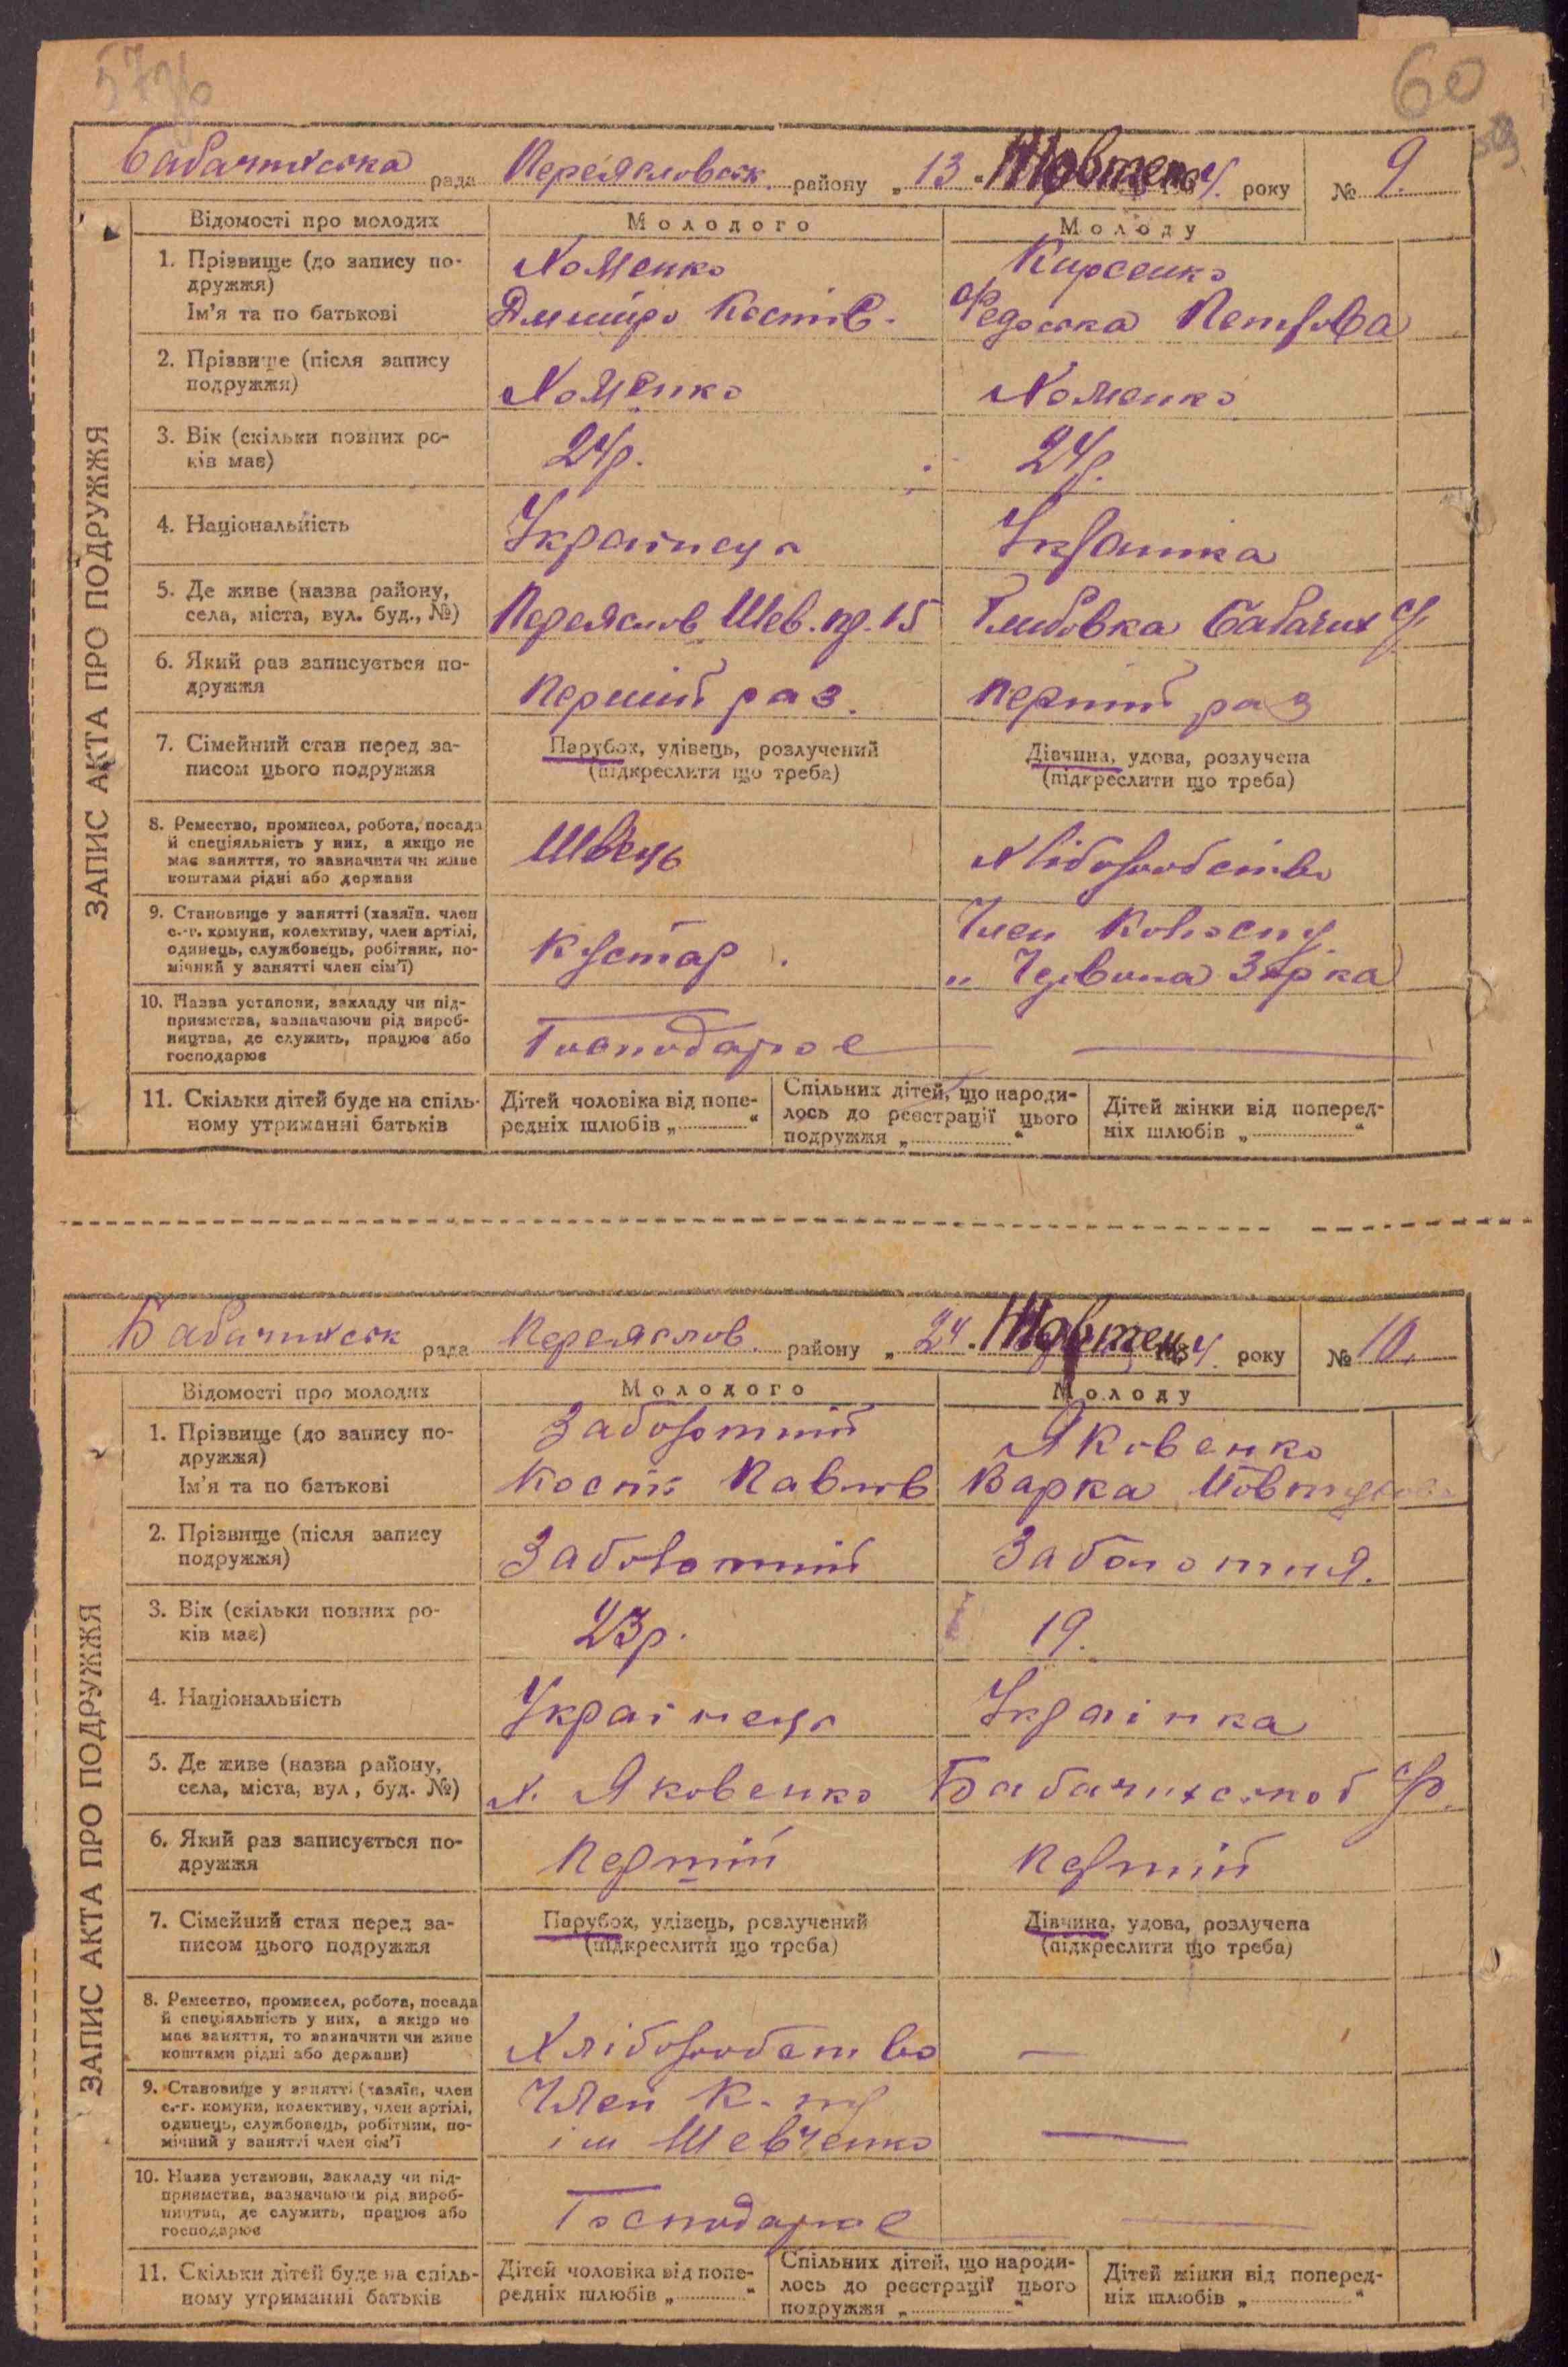 60
Бабачихська рада Переясловськ. району „ 13 „ Жовтень 4. року № 9.
ЗАПИС АКТА ПРО ПОДРУЖЖЯ
Відомості про молодих Молодого Молоду
1. Прізвище (до запису по-
дружжя)
Хоменко Кирсенко
Ім'я та по батькові Дмитро Костів. Федоска Петрова
2. Прізвище (після запису
подружжя)
Хоменко Хоменко
3. Вік (скільки повних ро-
ків має)
24р. 24р.
4. Національність Українець Українка
5. Де живе (назва району,
села, міста, вул. буд., №)
Переяслов Шев. пр. 15 Бабачих с/р
6. Який раз записується по-
дружжя
перший раз. перший раз
7. Сімейний стан перед за-
писом цього подружжя
Парубок, удівець, розлучений
(підкреслити що треба)
Дівчина, удова, розлучена
(підкреслити що треба)
8. Ремество, промисел, робота, посада
й спеціяльність у них, а якщо не
має заняття, то зазначити чи живе
коштами рідні або держави
Швець Хліборобство
9. Становище у занятті (хазяїн. член
с.-г. комуни, колективу, член артілі,
одинець, службовець, робітник, по-
мічний у занятті член сім'ї)
Кустар. Член Колгоспу
„ Червона Зірка
10. Назва установи, закладу чи під-
приємства, зазначаючи рід вироб-
ництва, де служить, працює або
господарює
Господарює —
11. Скільки дітей буде на спіль-
ному утриманні батьків
Дітей чоловіка від попе-
редніх шлюбів „ “
Спільних дітей, що народи-
лось до реєстрації цього
подружжя „ “
Дітей жінки від поперед-
ніх шлюбів „ “
Бабачихськ рада Переяслов. району „ 24 „ Жовтень 4. року № 10.
ЗАПИС АКТА ПРО ПОДРУЖЖЯ
Відомості про молодих Молодого Молоду
1. Прізвище (до запису по-
дружжя)
Заболотній Яковенко
Ім'я та по батькові Кость Павлов Варка
2. Прізвище (після запису
подружжя)
Заболотній Заболотня.
3. Вік (скільки повних ро-
ків має)
23р. 19.
4. Національність Українець Українка
5. Де живе (назва району,
села, міста, вул, буд. №)
х. Яковенко Бабачихської с/р.
6. Який раз записується по-
дружжя
Першій Першій
7. Сімейний стан перед за-
писом цього подружжя
Парубок, удівець, розлучений
(підкреслити що треба)
Дівчина, удова, розлучена
(підкреслити що треба)
8. Ремество, промисел, робота, посада
й спеціяльність у них, а якщо не
має заняття, то зазначити чи живе
коштами рідні або держави)
Хліборобство —
9. Становище у занятті (хазяїн, член
с.-г. комуни, колективу, член артілі,
одинець, службовець, робітник, по-
мічний у занятті член сім'ї
Член К.
ім Шевченко —
10. Назва установи, закладу чи під-
приємства, зазначаючи рід вироб-
ництва, де служить, працює або
господарює
Господарює —
11. Скільки дітей буде на спіль-
ному утриманні батьків
Дітей чоловіка від попе-
редніх шлюбів „ “
Спільних дітей, що народи-
лось до реєстрації цього
подружжя „ “
Дітей жінки від поперед-
ніх шлюбів „ “